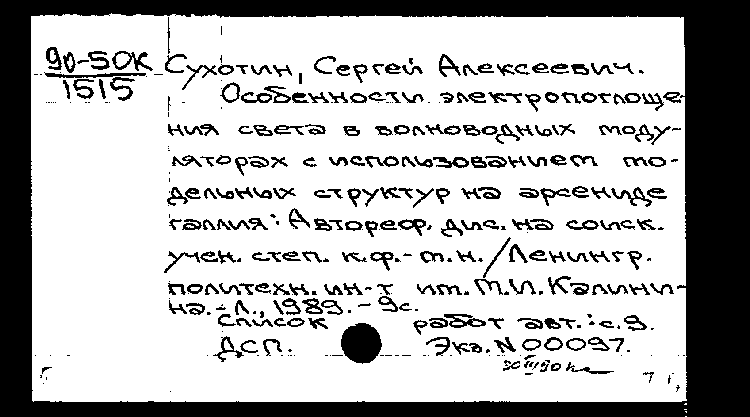 90-50К Сухотин, Сергей Алексеевич.
1515 Особенности электропоглоще-
ния света в волноводных моду-
ляторах с использованием мо-
дельных структур на арсениде
галлия: Автореф. дис. на соиск.
учен. степ. к.ф.-м.н. / Ленингр.
политехн. ин-т им. М.И. Калини-
на. - Л., 1989. - 9с.
Список работ авт.: с.9.
ДСП. Экз. N 00097.